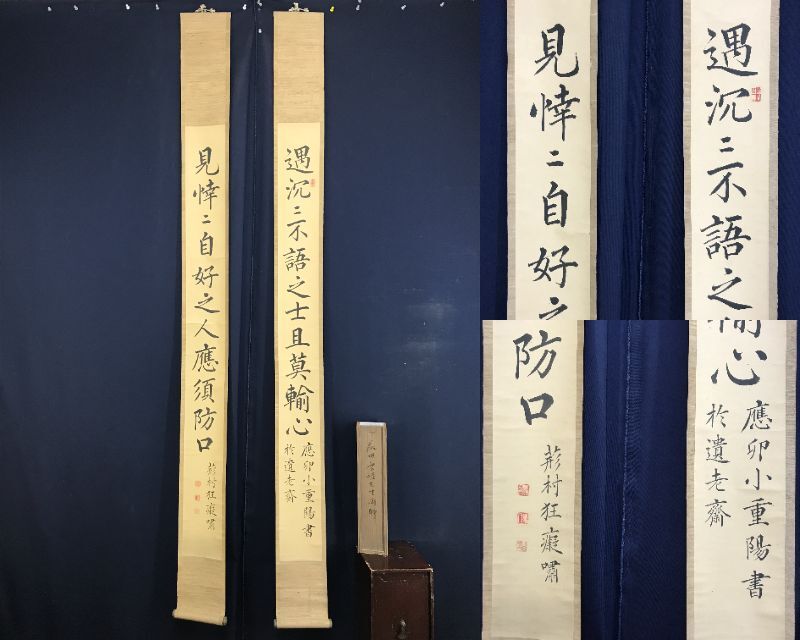 遇沉〻不語之士且莫輸心
應卯小重陽書
於遺老齋
見悻〻自好之人應須防口
村狂癡嘯
見悻〻自好之
遇沉〻不語之
防口
村狂癡嘯
輸心
應卯小重陽書
於遺老齋